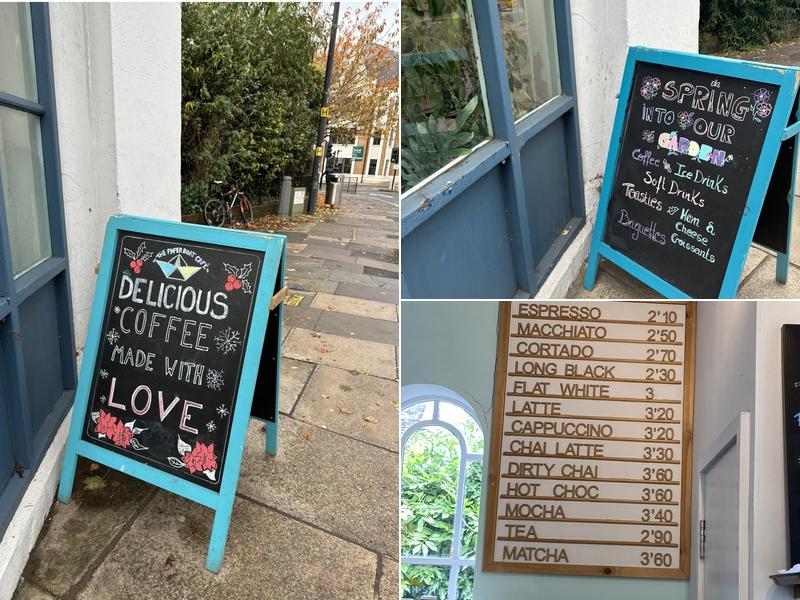 THE PAPER BOAT CAFÉ
DELICIOUS
COFFEE
MADE WITH
LOVE
SPRING
INTO OUR
GARDEN
Coffee Ice Drinks
Soft Drinks
Toasties Hem &
Cheese
Baguettes Croissants
ESPRESSO 2'10
MACCHIATO 2'50
CORTADO 2'70
LONG BLACK 2'30
FLAT WHITE 3
LATTE 3'20
CAPPUCCINO 3'20
CHAI LATTE 3'30
DIRTY CHAI 3'60
HOT CHOC 3'60
MOCHA 3'40
TEA 2'90
MATCHA 3'60